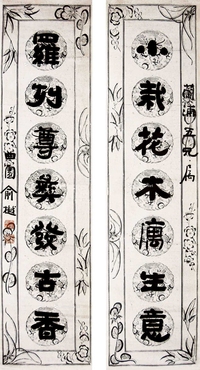 蘭浦五兄属
小栽花木庽生意
羅列尊彝發古香
曲園俞樾